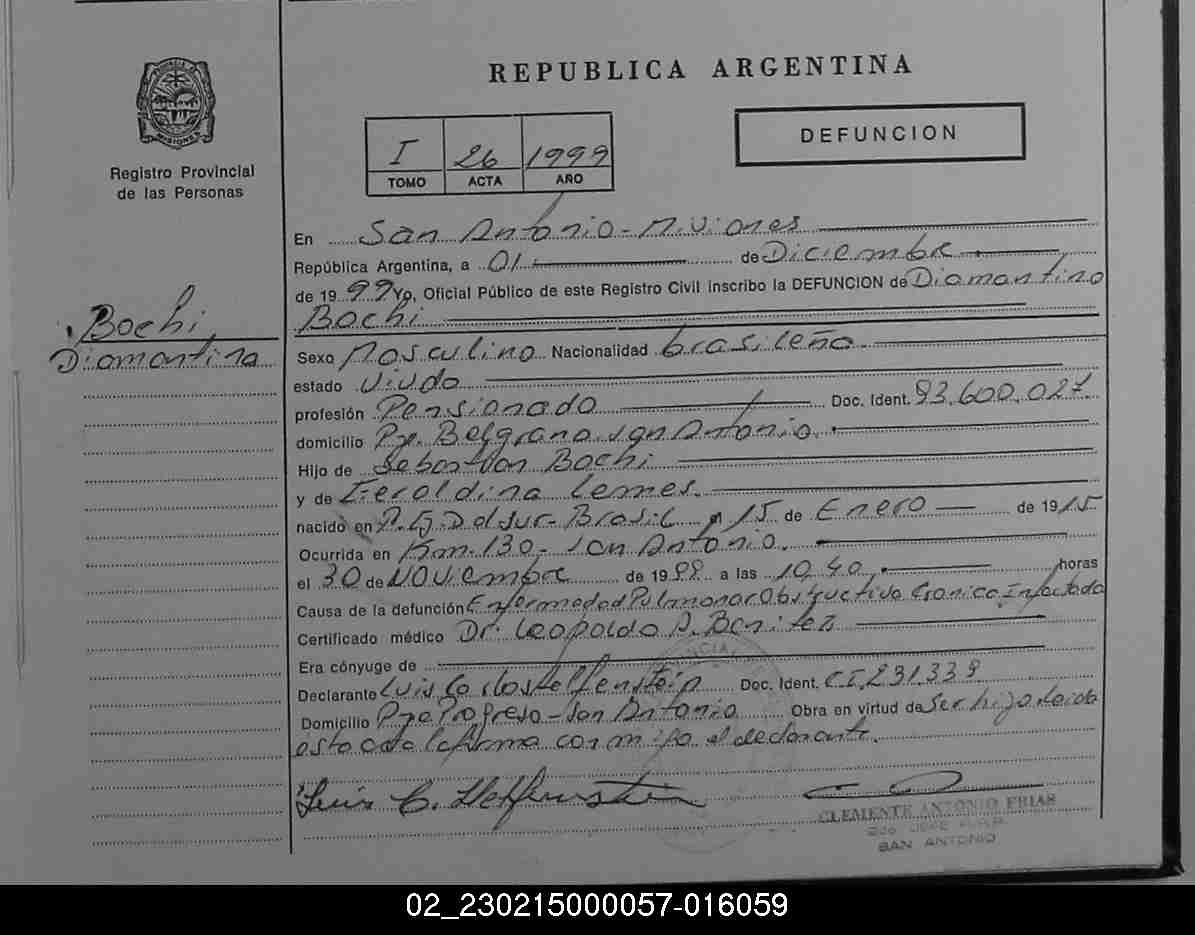 REPUBLICA ARGENTINA
PROVINCIA DE MISIONES
Registro Provincial
de las Personas
I 26 1999
TOMO ACTA AÑO
DEFUNCION
En San Antonio - Misiones
República Argentina, a 01 de Diciembre
de 19 99 Yo, Oficial Público de este Registro Civil inscribo la DEFUNCION de Diamantino
Bochi
Bochi
Diamantino
Sexo Masculino Nacionalidad brasileña
estado Viudo
profesión Pensionado Doc. Ident. 93.600.027
domicilio Pje. Belgrano San Antonio.
Hijo de Sebastian Bochi
y de Geroldina Lemes.
nacido en R. G. Del sur - Brasil el 15 de Enero de 19 15
Ocurrida en Km. 130 - San Antonio.
el 30 de Noviembre de 19 99 a las 10,40 horas
Causa de la defunción Enfermedad Pulmonar Obstructiva Cronica Infectada
Certificado médico Dr. Leopoldo A. Benitez
Era cónyuge de
Declarante Luis Helfenstein Doc. Ident. C.I. 231.339
Domicilio Pje Progreso - San Antonio Obra en virtud de Ser hijo Leida
esta acta la firma conmigo el declarante.
Luis C. Helfenstein
CLEMENTE ANTONIO FRIAS
JEFE
SAN ANTONIO
02_230215000057-016059